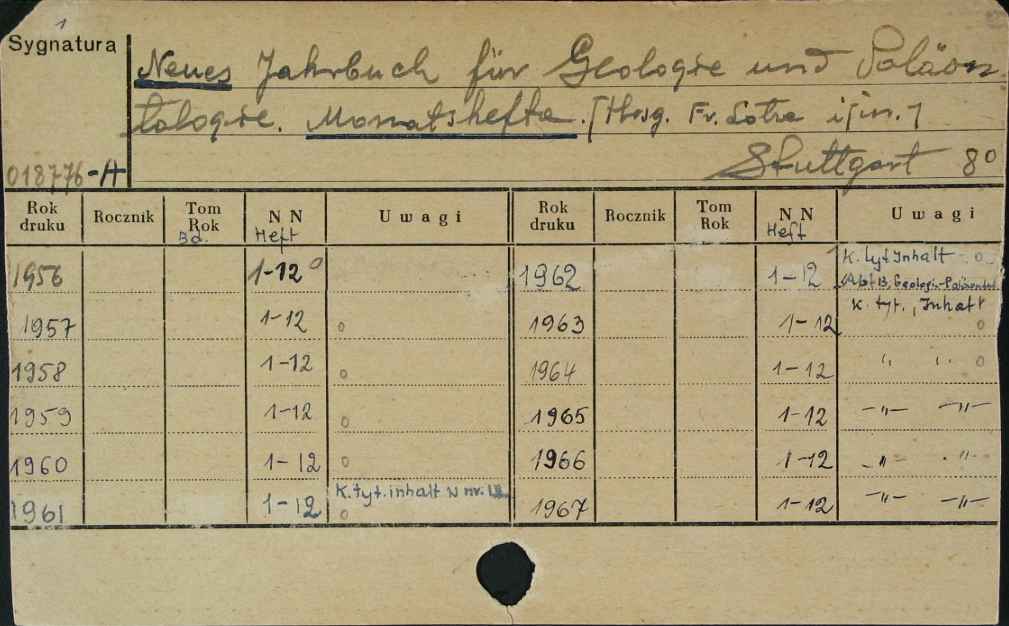 1
Sygnatura
Neues Jahrbuch für Geologie und Paläon
tologie. Monatshefte. [Hrsg. Fr. Lotze i in.]
Stuttgart 8°
018776-A
Rok druku Rocznik Tom Rok NN Uwagi Rok druku Rocznik Tom Rok NN Uwagi
Bd. Heft Heft
1956 1-12 o 1962 1-12 K. tyt Inhalt o
Abt B, Geologie-Paläontol.
1957 1-12 o 1963 1-12 K. tyt., Inhalt o
1958 1-12 o 1964 1-12 " " o
1959 1-12 o 1965 1-12 -"- -"-
1960 1-12 o 1966 1-12 -"- -"-
1961 1-12 K. tyt. inhalt w nr. o 1967 1-12 -"- -"-